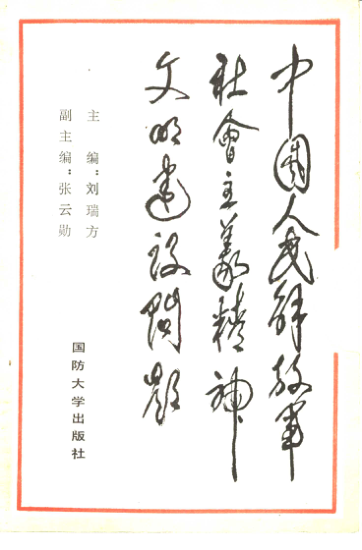 中國人民解放军
社會主義精神
文明建设問題
主 编：刘瑞方
副主编：张云勋
国防大学出版社